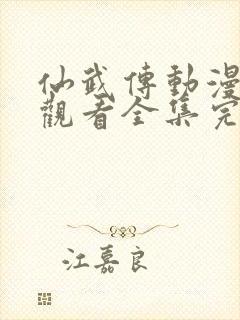 仙武傳動漫
觀看全集完
江嘉良